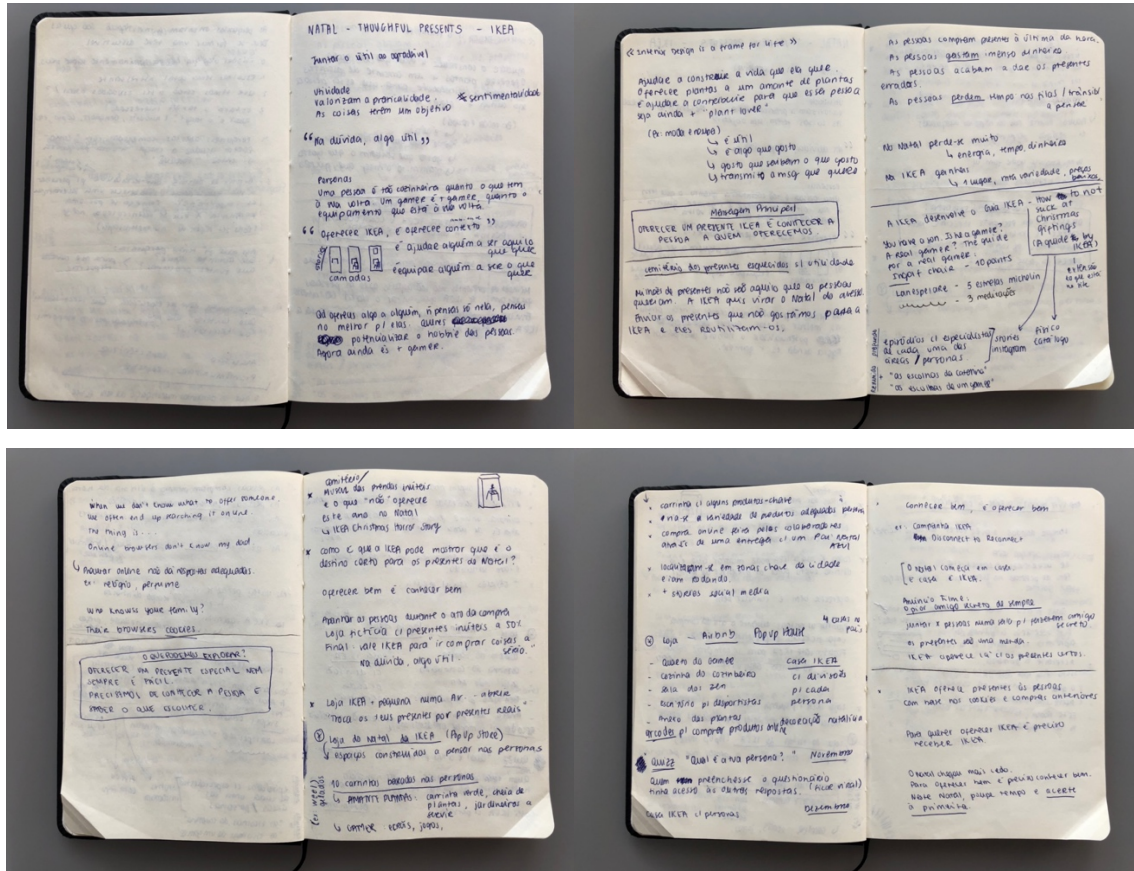 NATAL - THOUGHFUL PRESENTS - IKEA
Juntar o útil ao agradável
utilidade
valorizam a praticalidade. sentimentalidade
As coisas terem um objetivo
"Na dúvida, algo útil"
Personas
Uma pessoa é tão cozinheira quanto o que tem
à sua volta. Um gamer é + gamer, quanto o
equipamento que está à sua volta.
"Oferecer IKEA, é oferecer contexto"
é ajudar alguém a ser aquilo
que quer
camadas
é equipar alguém a ser o que
quer
Ao ofereces algo a alguém, ñ pensas só nela, pensas
no melhor p/ elas: queres
potencializar o hobbie das pessoas.
Agora ainda és + gamer.
<< Interior Design is a frame for life >>
Ajudar a construir a vida que ela quer.
Oferecer plantas a um amante de plantas
é ajudar a contribuir para que essa pessoa
seja ainda + "plant lover"
↳ é útil
↳ é algo que gosto
↳ gosto que saibam o que gosto
↳ transmito a msg que quero
Mensagem Principal
OFERECER UM PRESENTE IKEA É CONHECER A
PESSOA A QUEM OFERECEMOS.
cemitério dos presentes esquecidos s/ utilidade
Milhões de presentes não são aquilo que as pessoas
queriam. A IKEA quis virar o Natal do avesso.
Enviar os presentes que não gostamos para a
IKEA e eles reutilizam-os.
As pessoas compram presentes à última da hora.
As pessoas gastam imenso dinheiro
As pessoas acabam a dar os presentes
errados.
As pessoas perdem tempo nas filas / trânsito
a pensar
No Natal perde-se muito
↳ energia, tempo, dinheiro
No IKEA ganhas
↳ 1 lugar, mta variedade, preços
A IKEA desenvolve o Guia IKEA - How to not
suck at
Christmas
giftings
(A guide by
IKEA)
You have a son. Is he a gamer?
A real gamer? The guide
for a real gamer.
chair - 10 points
- 5 estrelas michelin
- 3 meditações
extensão
do que está
no site
físico
catálogo
stories
instagram
episódios c/ especialistas
de cada uma das
áreas / personas
+ "as escolhas da Catarina"
"as escolhas de um gamer"
When we don't know what to offer someone,
we often end up searching it online.
The thing is...
Online browsers don't know my dad
↳ Procurar online não dá respostas adequadas.
ex: relógio, perfume
Who knows your family?
Their browsers cookies.
O QUE PODEMOS EXPLORAR?
OFERECER UM PRESENTE ESPECIAL NEM
SEMPRE É FÁCIL.
PRECISAMOS DE CONHECER A PESSOA E
SABER O QUE ESCOLHER.
cemitério/
* Museu das prendas inúteis
é o que "não" oferecer
este ano no Natal
↳ IKEA Christmas Horror Story
* como é que a IKEA pode mostrar que é o
destino certo para os presentes do Natal?
oferecer bem é conhecer bem
Apanhar as pessoas durante o ato da compra
Loja fictícia c/ presentes inúteis a 50%
Final: vale IKEA para "ir comprar coisas a
sério."
Na dúvida, algo útil.
* Loja IKEA + pequena numa Av. - abrir
"Troca os teus presentes por presentes reais"
* Loja do Natal da IKEA (PopUp Store)
↳ espaços construídos a pensar nas personas
10 carrinhas baseadas nas personas
↳ AMANTE PLANTAS: carrinha verde, cheia de
plantas, jardineiros a
servir
↳ GAMER: jogos,
carrinha c/ alguns produtos-chave
cria-se a variedade de produtos adequados à persona
compra online feita pelos colaboradores
através de uma entrega c/ um Pai Natal
AZUL
localizam-se em zonas chave da cidade
e iam rodando.
+ social media
4 casas no
país
* Loja - Airbnb PopUp House
- Quarto do Gamer
- cozinha do cozinheiro
- sala dos zen
- escritório p/ desportistas
- anexo das plantas
casa IKEA
c/ divisões
p/ cada
persona
decoração natalícia
QR codes p/ comprar produtos online
Quizz "Qual é a tua persona?" Novembro
Quem preenchesse o questionário
tinha acesso às outras respostas. (ficar viral)
Dezembro
Casa IKEA c/ personas
Conhecer bem, é oferecer bem
ex: Campanha IKEA
Disconnect to Reconnect
O natal começa em casa.
E casa é IKEA.
Anúncio Filme:
O pior amigo secreto de sempre
juntar x pessoas numa sala p/ fazerem amigo
secreto.
Os presentes são uma merda.
IKEA aparece lá c/ os presentes certos.
* IKEA oferece presentes às pessoas
com base nos cookies e compras anteriores
Para querer oferecer IKEA é preciso
receber IKEA
O natal chegou mais cedo.
Para oferecer bem é preciso conhecer bem.
Neste Natal, poupa tempo e acerta
à primeira.